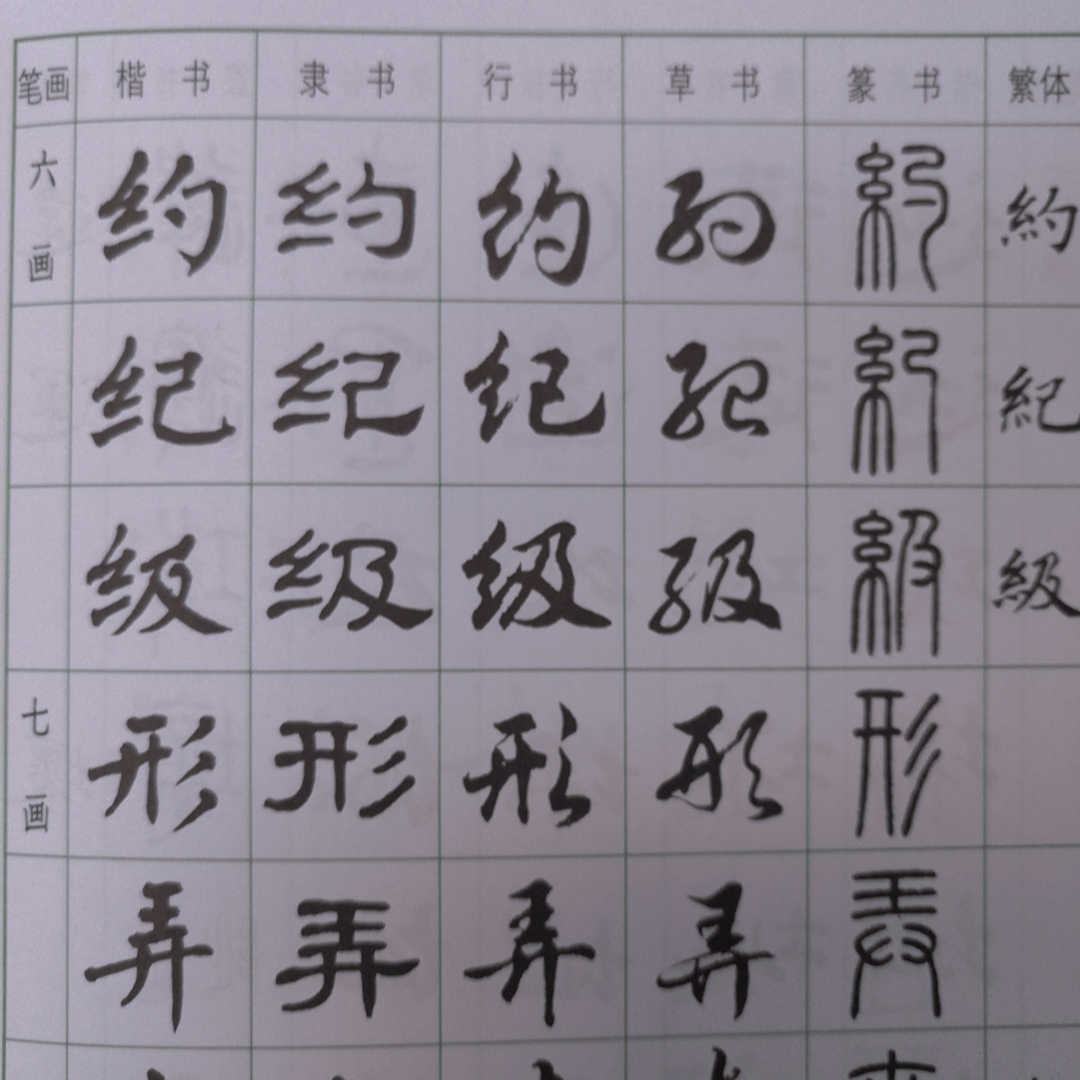 笔画 楷书 隶书 行书 草书 篆书 繁体
六画 约 约 约 约 約 約
纪 纪 纪 纪 紀 紀
级 级 级 级 級 級
七画 形 形 形 形 形
弄 弄 弄 弄 弄